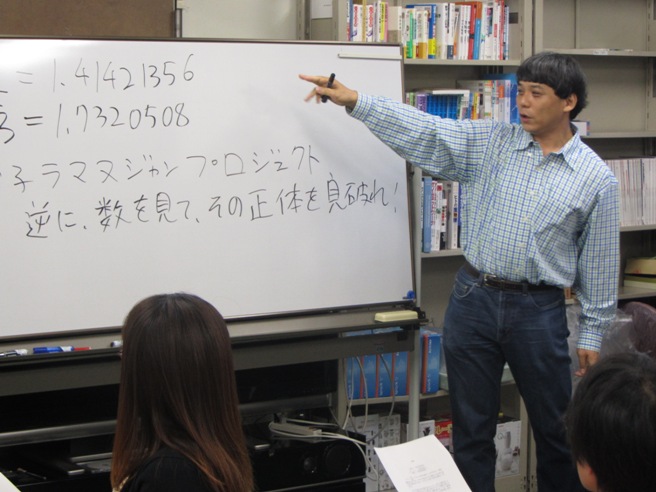 = 1.41421356
√3 = 1.7320508
子ラマヌジャンプロジェクト
逆に、数を見て、その正体を見破れ!